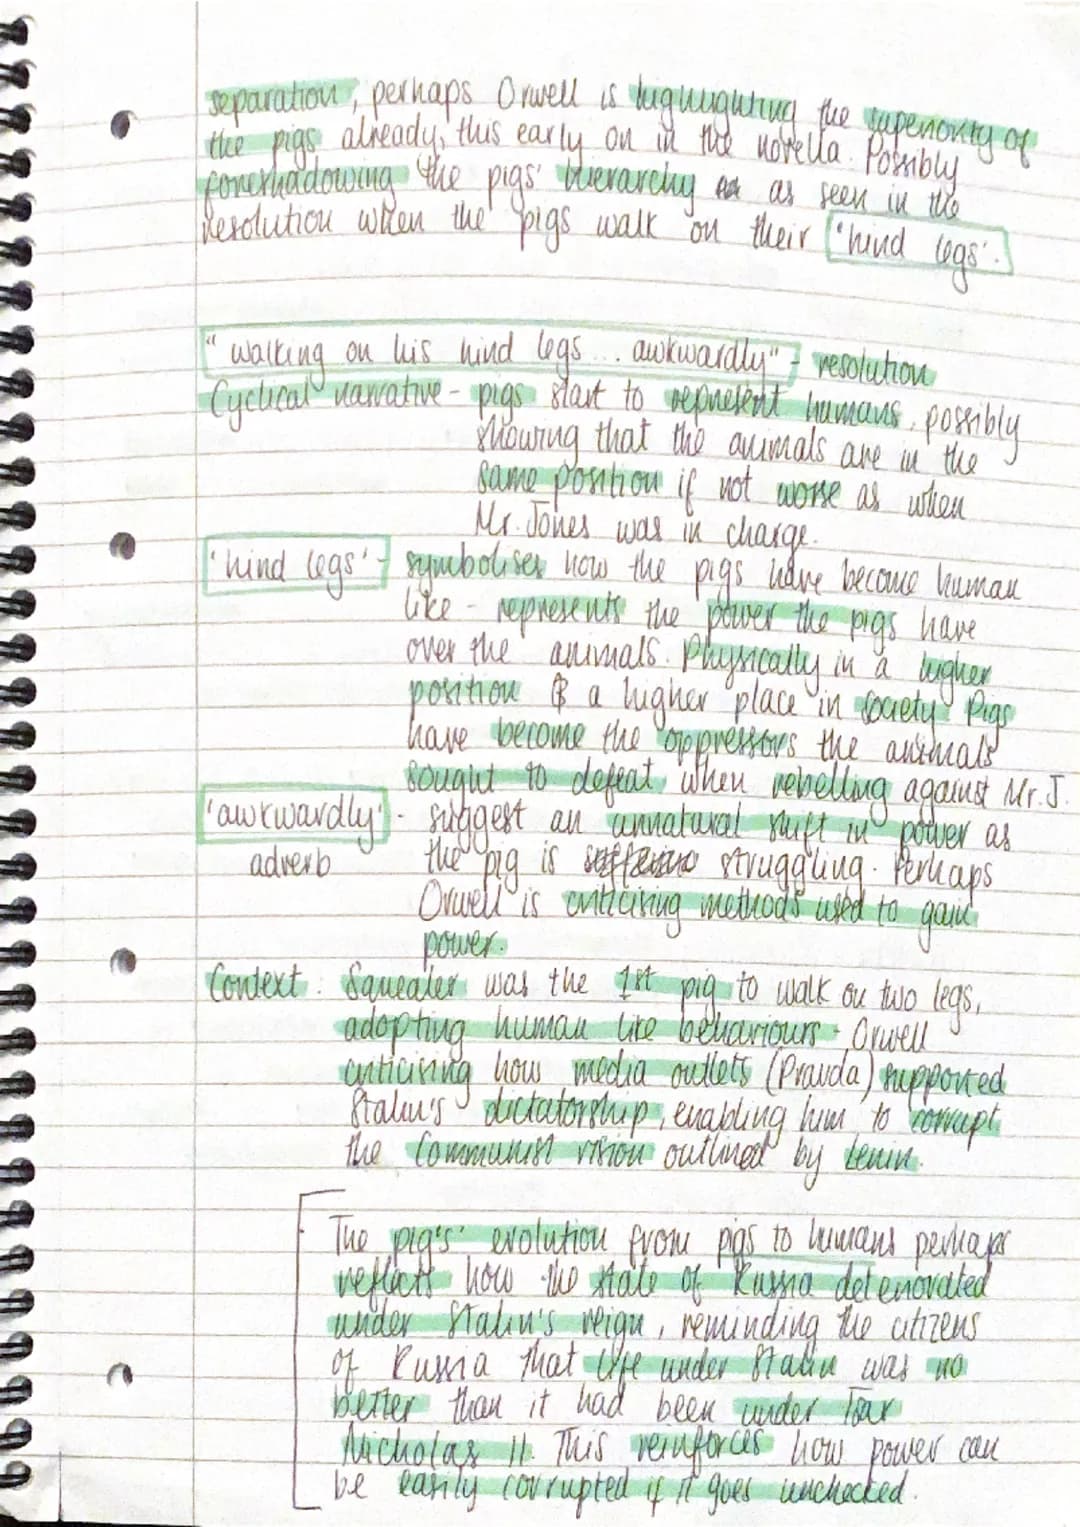 separation, perhaps Orwell is highlighting the superiority of
the pigs already, this early on in the novella. Possibly
foreshadowing the pigs' hierarchy as seen in the
resolution when the pigs walk on their 'hind legs'.
"walking on his hind legs ... awkwardly" - resolution
Cyclical narrative - pigs start to represent humans, possibly
showing that the animals are in the
same position if not worse as when
Mr. Jones was in charge.
'hind legs' - symbolises how the pigs have become human
like - represents the power the pigs have
over the animals. Physically in a higher
position & a higher place in society. Pigs
have become the oppressors the animals
sought to defeat when rebelling against Mr. J.
'awkwardly' - suggest an unnatural shift in power as
adverb the pig is struggling. Perhaps
Orwell is criticising methods used to gain
power.
Context: Squealer was the 1st pig to walk on two legs,
adopting human like behaviours - Orwell
criticising how media outlets (Pravda) supported
Stalin's dictatorship, enabling him to corrupt
the Communist vision outlined by Lenin.
The pig's' evolution from pigs to humans perhaps
reflects how the state of Russia deteriorated
under Stalin's reign, reminding the citizens
of Russia that life under Stalin was no
better than it had been under Tsar
Nicholas II. This reinforces how power can
be easily corrupted if it goes unchecked.